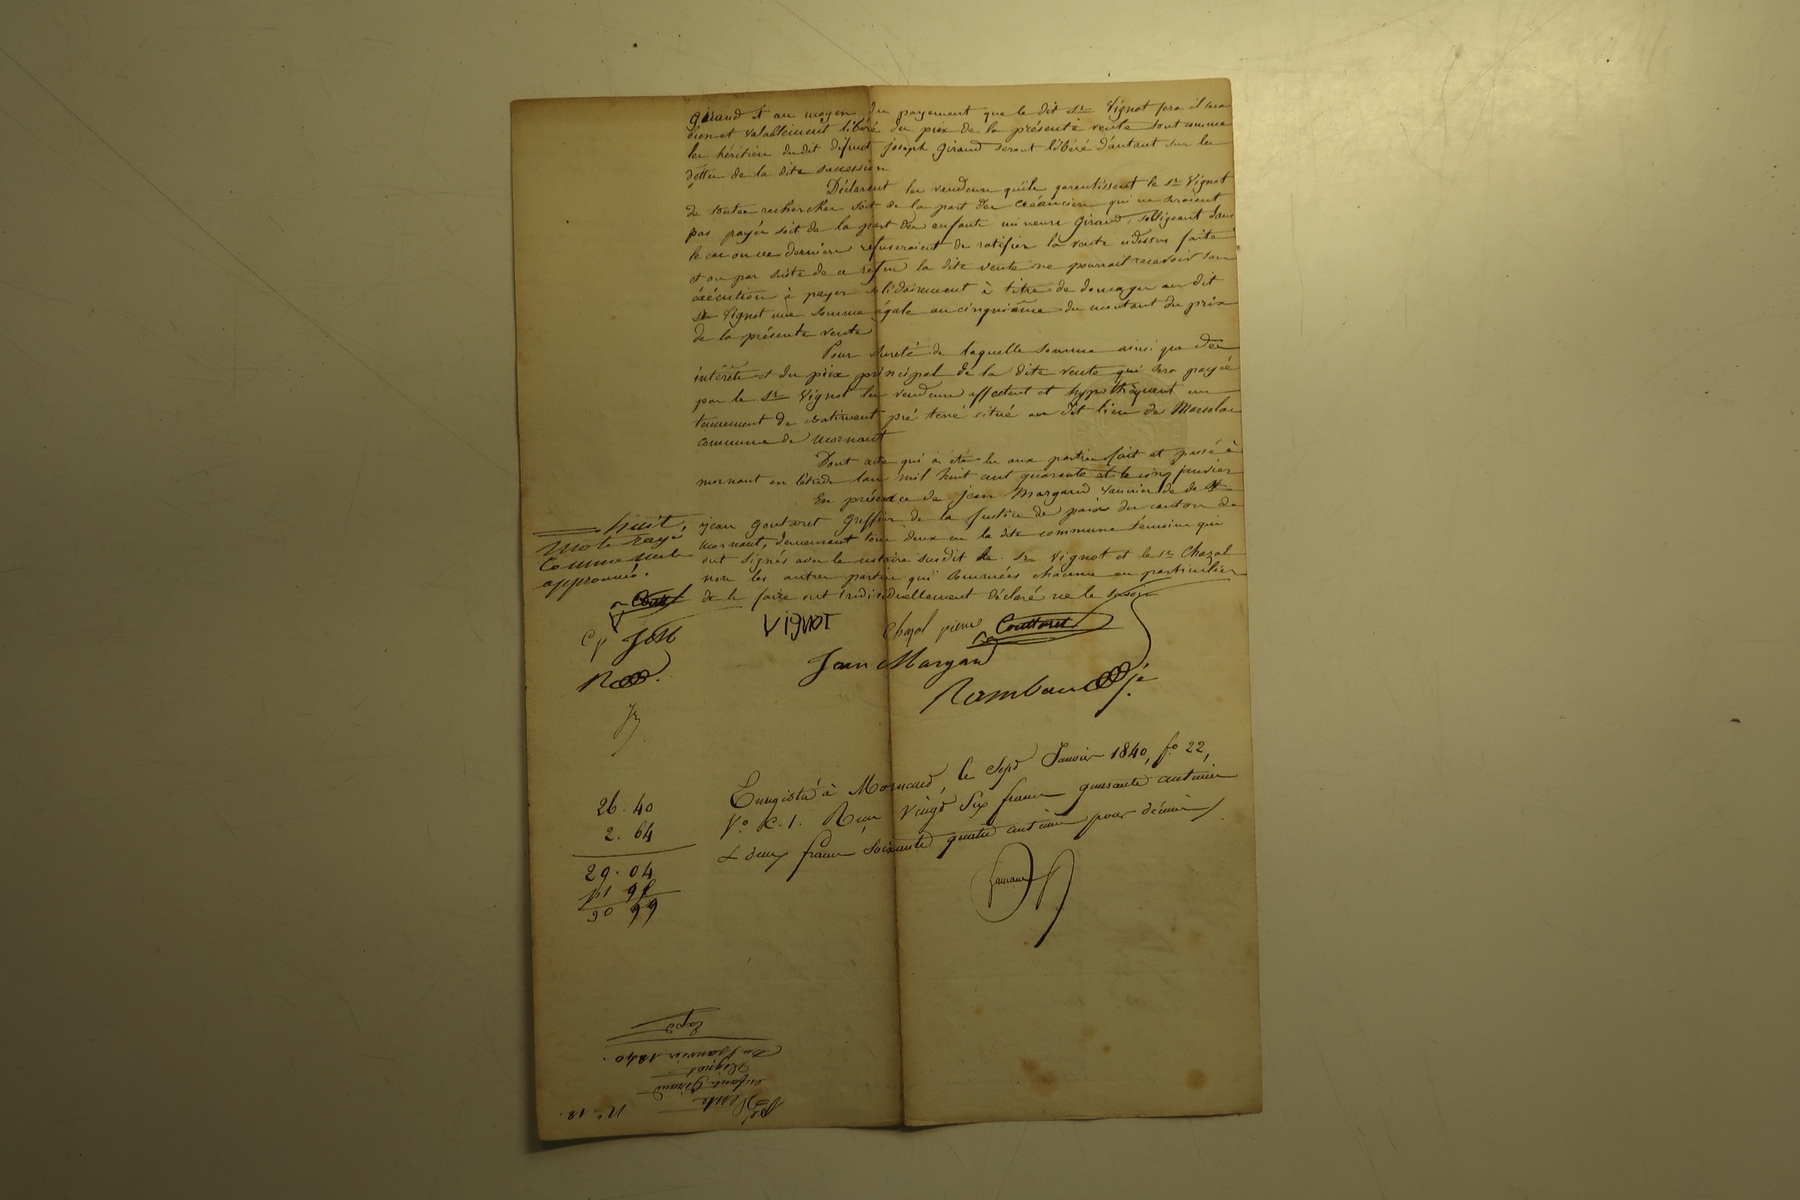 Giraud et au moyen du payement que le dit sr Vignot fera il sera
bien et valablement libéré du prix de la présente vente tout comme
les héritiers dudit défunt joseph Giraud seront libéré d'autant sur les
dettes de la dite succession
Déclarent les vendeurs qu'ils garantissent le sr Vignot
de toutes recherches soit de la part des créanciers qui ne seraient
pas payés soit de la part des enfants mineurs Giraud, s'obligeant dans
le cas ou ces derniers refuseraient de ratifier la vente cidessus faite
et ou par suite de ce refus la dite vente ne pourrait recevoir son
éxécution à payer solidairement à titre de domages au dit
sr Vignot une somme égale au cinquième du montant du prix
de la présente vente
Pour sureté de laquelle somme ainsi que des
intérêts et du prix principal de la dite vente qui sera payée
par le sr Vignot les vendeurs affectent et hypothèquent un
tennement de batiment pré terre situé au dit lieu de
commune de Mornant
Dont acte qui a été lu aux parties fait et passé à
mornant en l'étude l'an mil huit cent quarante et le cinq janvier
En présence de jean Margand
jean Goutaret Greffier de la justice de paix du canton de
Mornant, demeurant tous deux en la dite commune témoins qui
ont signés avec le notaire susdit le sr Vignot et le sr Chazal
non les autres parties qui sommées chacune en particulier
de le faire ont individuellement déclaré ne le savoir
huit
mots rayés
comme nuls
approuvés.
Vignot
Chazal pierre
Jean Margand
Enregistré à Mornant, le sept Janvier 1840, fo 22,
Vo C. 1. Reçu vingt six francs quarante centimes
& deux francs soixante quatre centimes pour décime
26. 40
2. 64
29. 04
No 18.
Vente
enfants Giraud
Vignot
Du 5 Janvier 1840.